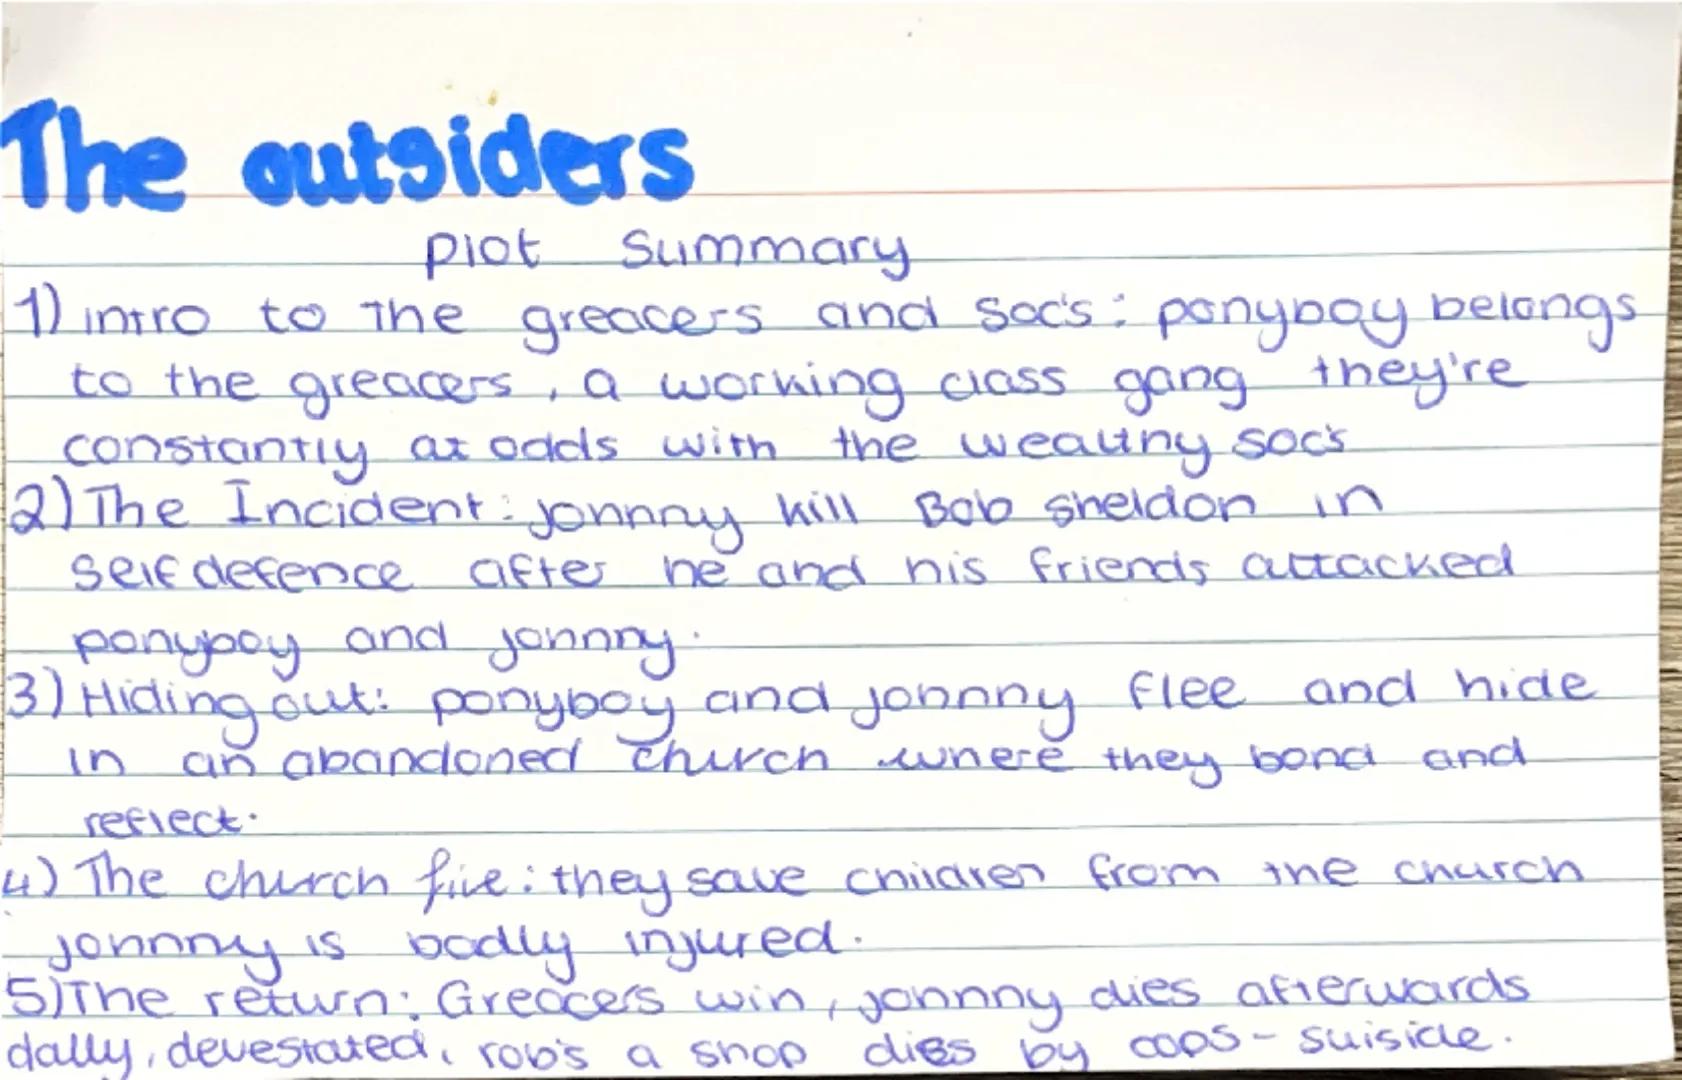 The outsiders
plot summary
1) intro to the greacers and Soc's: ponyboy belongs
to the greacers, a working class gang they're
constantly at odds with the wealthy soc's
2) The Incident: johnny kill Bob sheldon in
self defence after he and his friends attacked
ponyboy and johnny.
3) Hiding out: ponyboy and johnny flee and hide
in an abandoned church where they bond and
reflect.
4) The church fire: they save children from the church
johnny is badly injured.
5) The return: Greacers win, johnny dies afterwards
dally, devestated, rob's a shop dies by cops-suiside.